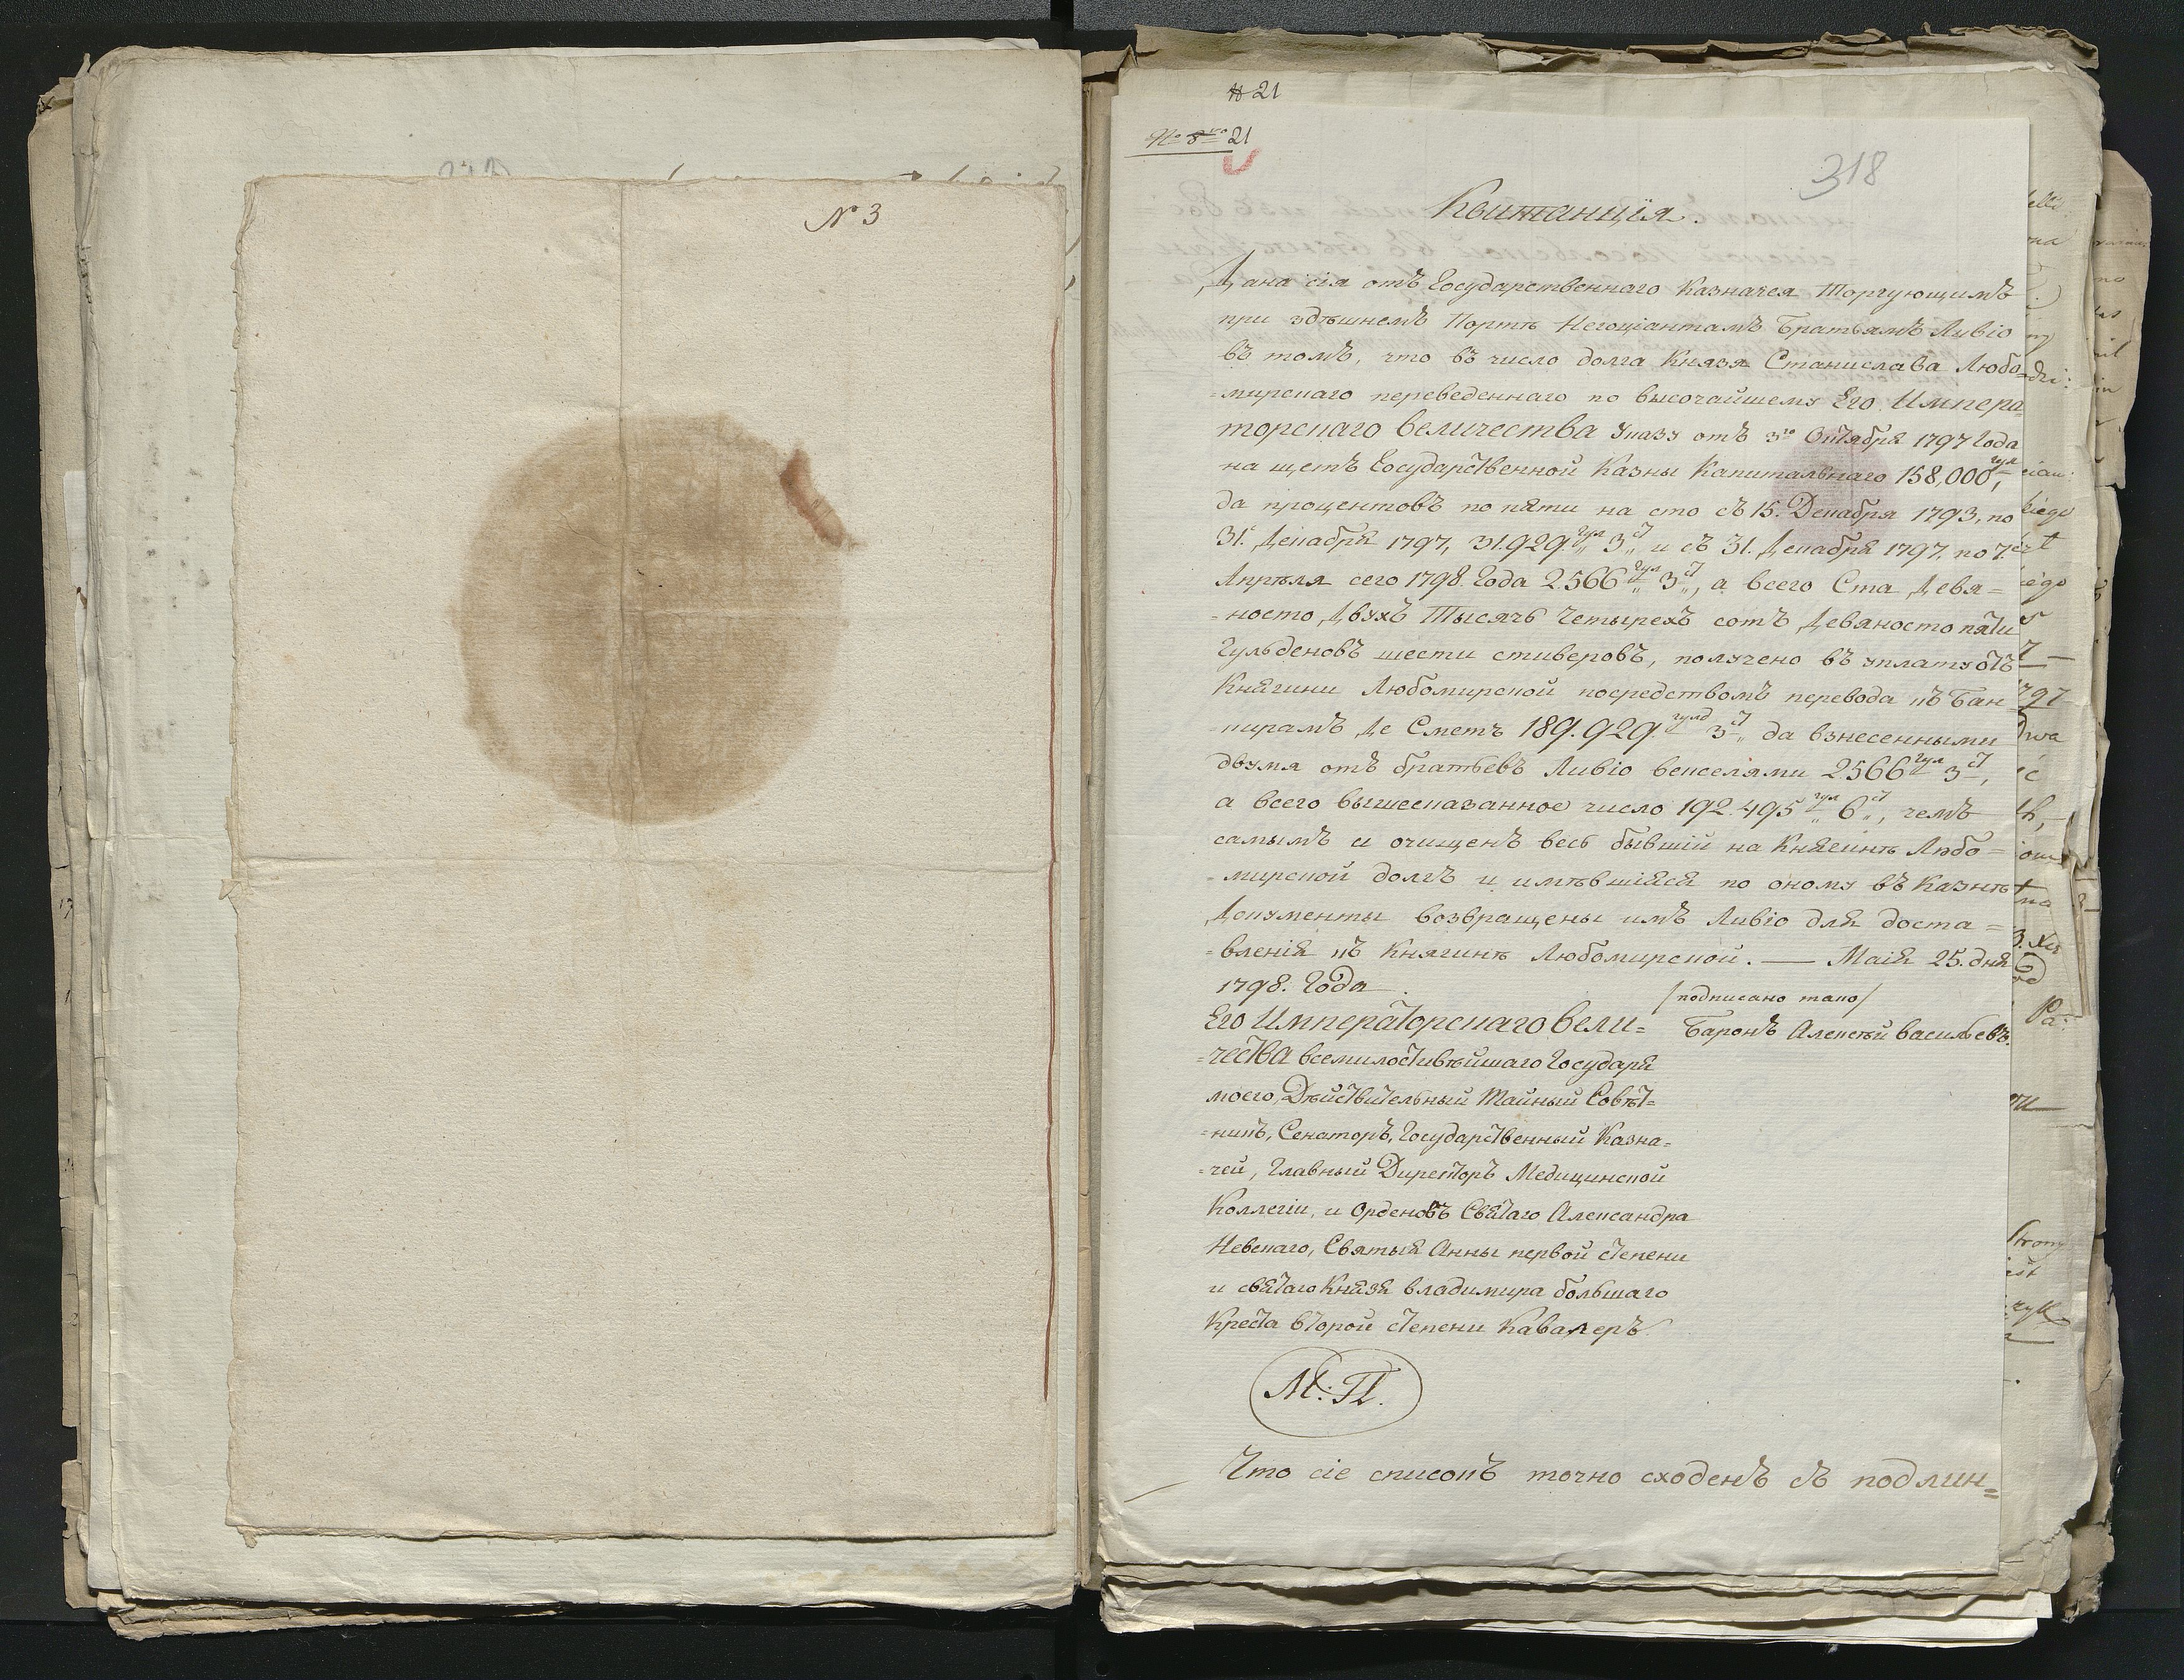 № 3
№ 21
21
318
Квитанція.
Дана сія отъ Государственнаго Казначея Торгующимъ
при здѣшнемъ Портѣ Негоціантамъ Братьямъ Ливіо
въ томъ, что въ число долга Князя Станислава Любо-
-мирскаго переведеннаго по высочайшему Его Импера-
торскаго величества указу отъ 3го Октября 1797 Года
на щетъ Государственной Казны Капитальнаго 158,000 гул,
да процентовъ по пяти на сто съ 15. Декабря 1793, по
31. Декабря 1797, 31.929. гул 3 ст и съ 31. Декабря 1797. по 7.
Апрѣля сего 1798. Года 2.566 гул 3 ст, а всего Ста Девя=
=носто Двухъ Тысячь Четырехъ сотъ Девяносто пяти
Гульденовъ шести стиверовъ, получено въ уплату отъ
Княгини Любомирской посредствомъ перевода къ Бан-
-кирамъ Де Сметъ 189.929. гулд 3 ст да взнесенными
двумя отъ братьевъ Ливіо векселями 2566 гул 3 ст,
а всего вышесказанное число 192.495 гул 6 ст, чемъ
самымъ и очищенъ весь бывшій на Княгинѣ Любо=
-мирской долгъ и имѣвшіяся по оному въ Казнѣ
Документы возвращены имъ Ливіо для доста=
-вленія къ Княгинѣ Любомирской. — Маія 25. дня
1798. Года.
/подписано тако/
Его Императорскаго вели=
Баронъ Алексѣй васильевъ.
-чества всемилостивѣйшаго Государя
моего, Дѣйствительный Тайный Совѣт=
=никъ, Сенаторъ, Государственный Казна=
-чей, Главный Директоръ Медицинской
Коллегіи, и Орденовъ Святаго Александра
Невскаго, Святыя Анны первой степени
и святаго Князя владимира большаго
Креста второй степени Кавалеръ.
М: П.
Что сіе списокъ точно сходенъ съ подлин=